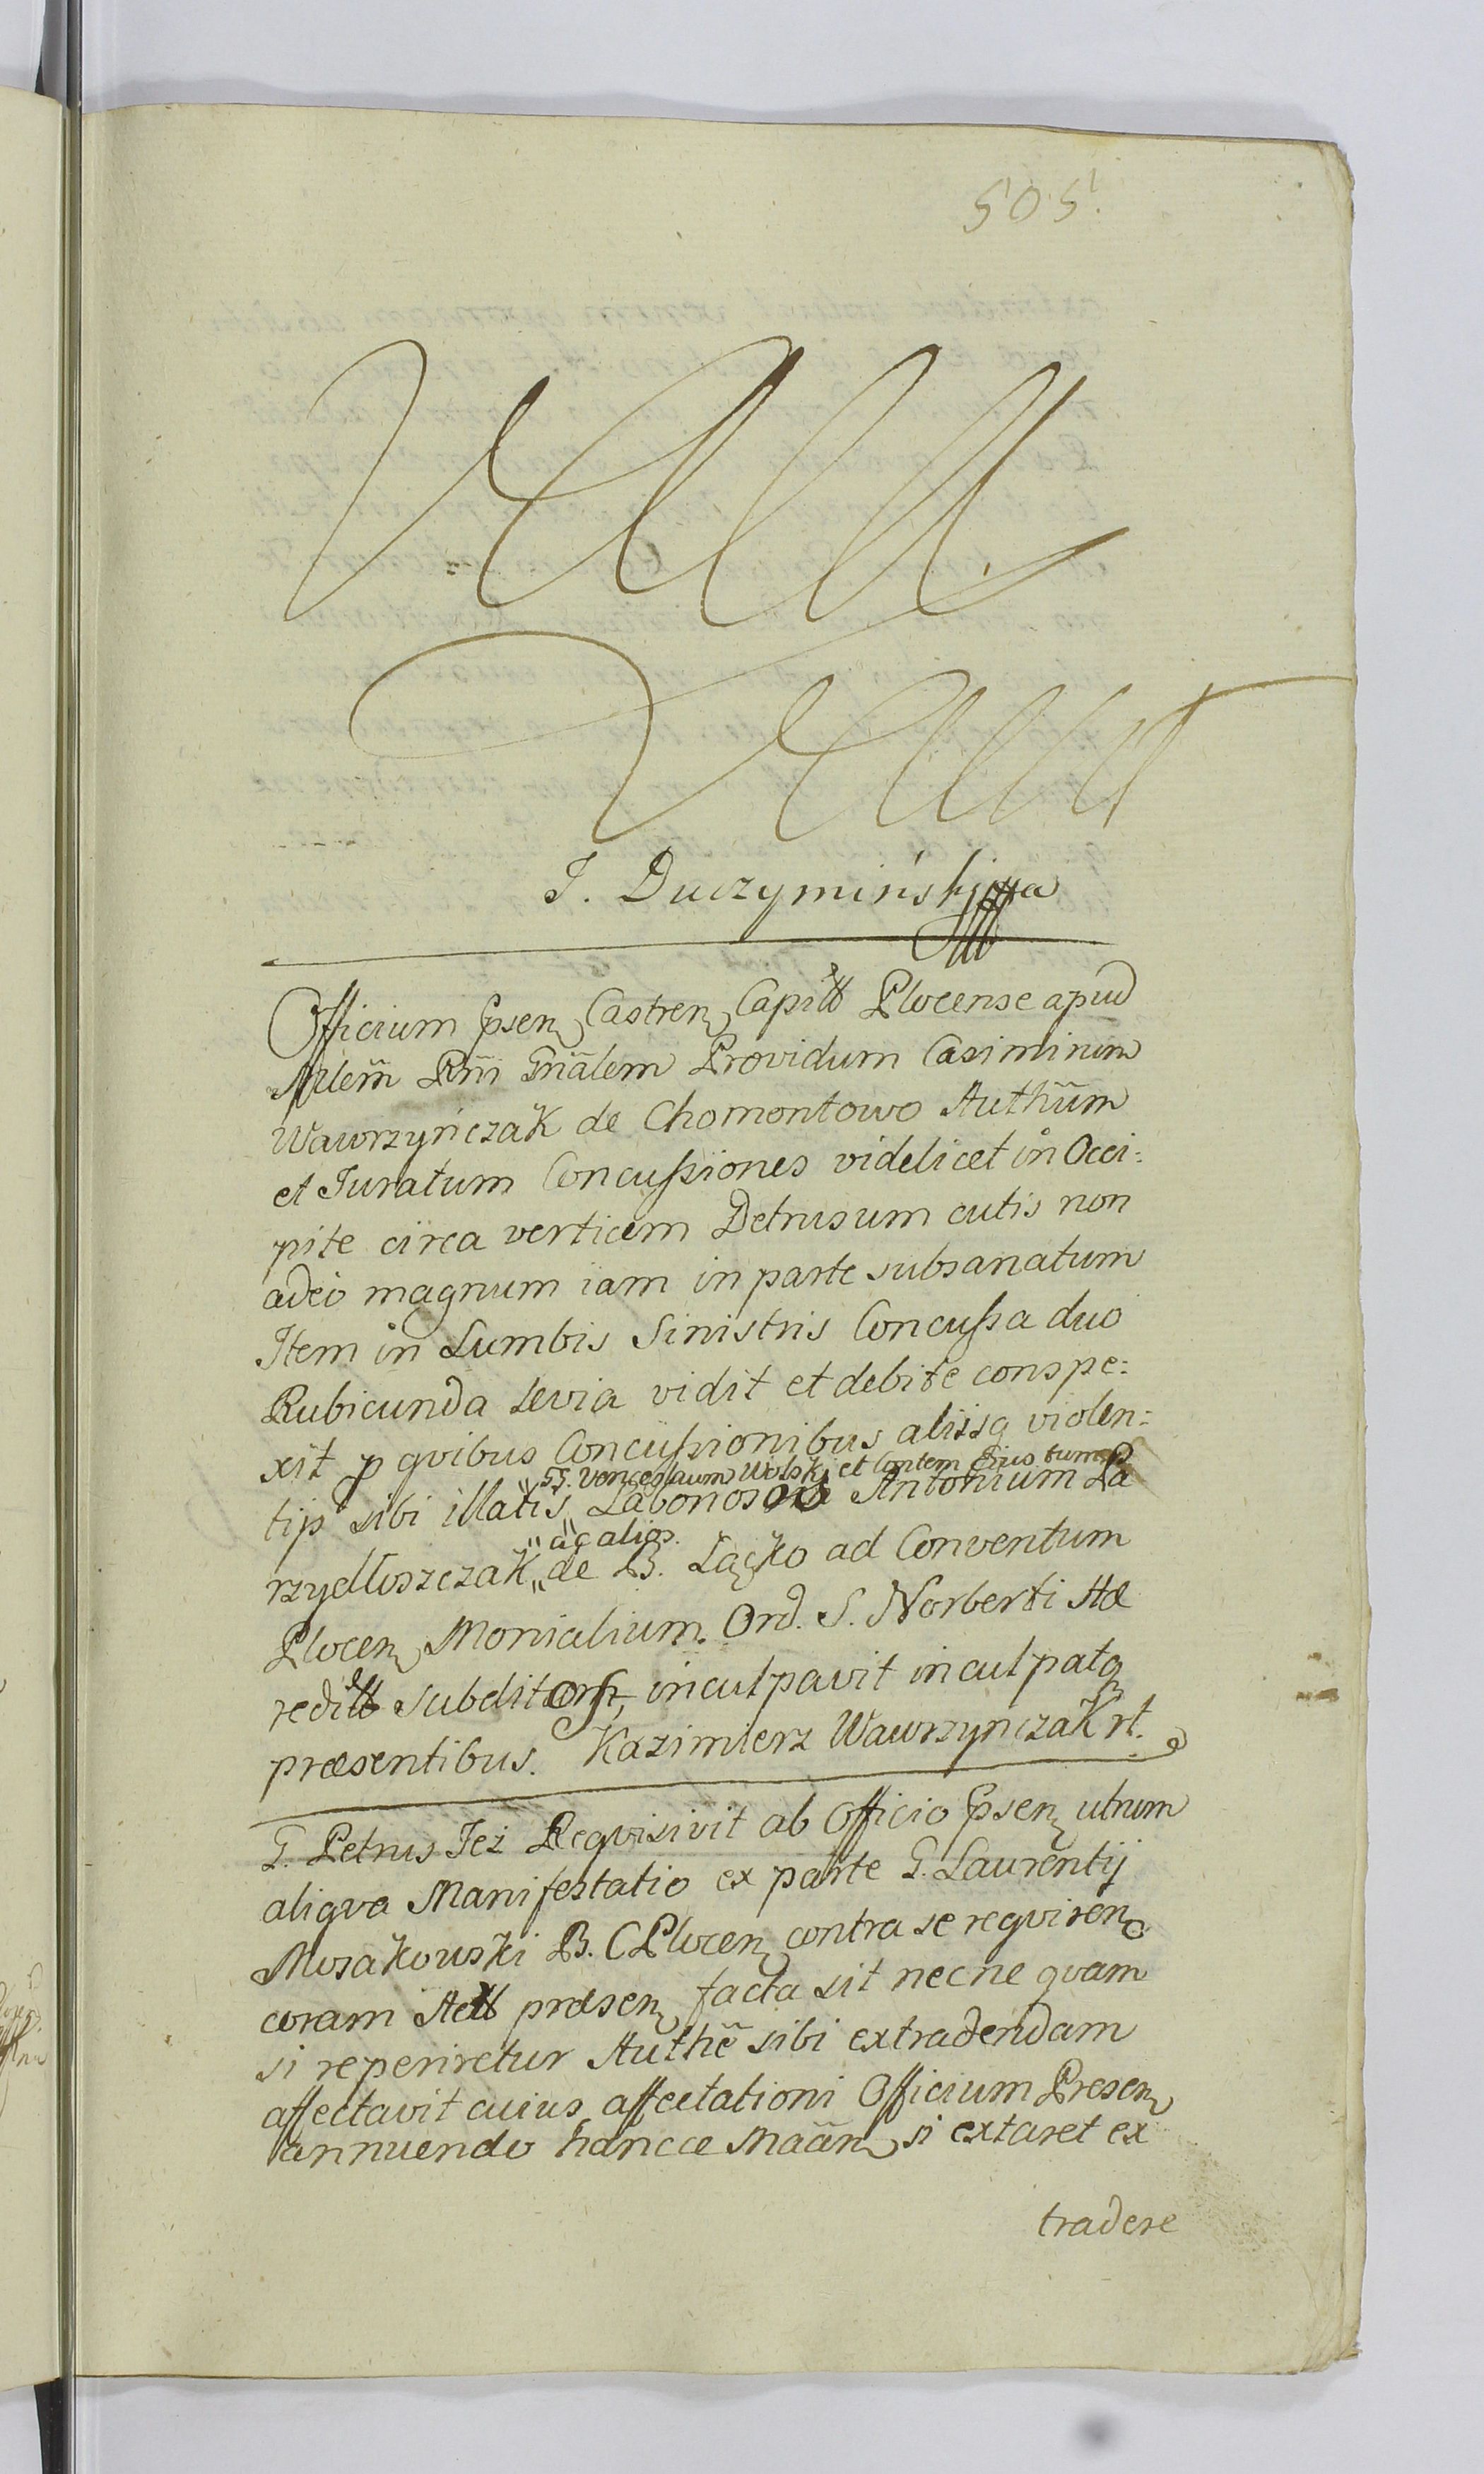 505.
J. Duczymiński mpa
Officium Epsen Castren Capitt Plocense apud
Mlem Rni Gnalem Providum Casimirum
Wawrzyńczak de Chomontowo Authum
et Juratum Concussiones videlicet in Occi:
pite circa verticem Detrusum cutis non
adeo magnum iam in parte subsanatum
Item in Lumbis Sinistris Concussa duo
Rubicunda levia vidit et debite conspe:
xit p qvibus Concussionibus aliisq violen:
"GG. Venceslaum Wolski et Contem Eius tum
tijs sibi illatis " Labonosos Antonium Pa
"ac alios.
rzydloszczak " de B. Łącko ad Conventum
Plocen Monialium Ord. S. Norberti Hæ
reditt subditos, inculpavit inculpatq
præsentibus. Kazimierz Wawrzynczak rt.
G. Petrus Jeż Reqvisivit ab Officio Epsen utrum
aliqva Manifestatio ex parte G. Laurentij
Mosakowski B. C Plocen contra se reqviren
coram Actt præsen facta sit necne qvam
si reperiretur Authe sibi extradendam
affectavit cuius affectationi Officium Presen
annuendo hancce Maam si extaret ex
tradere